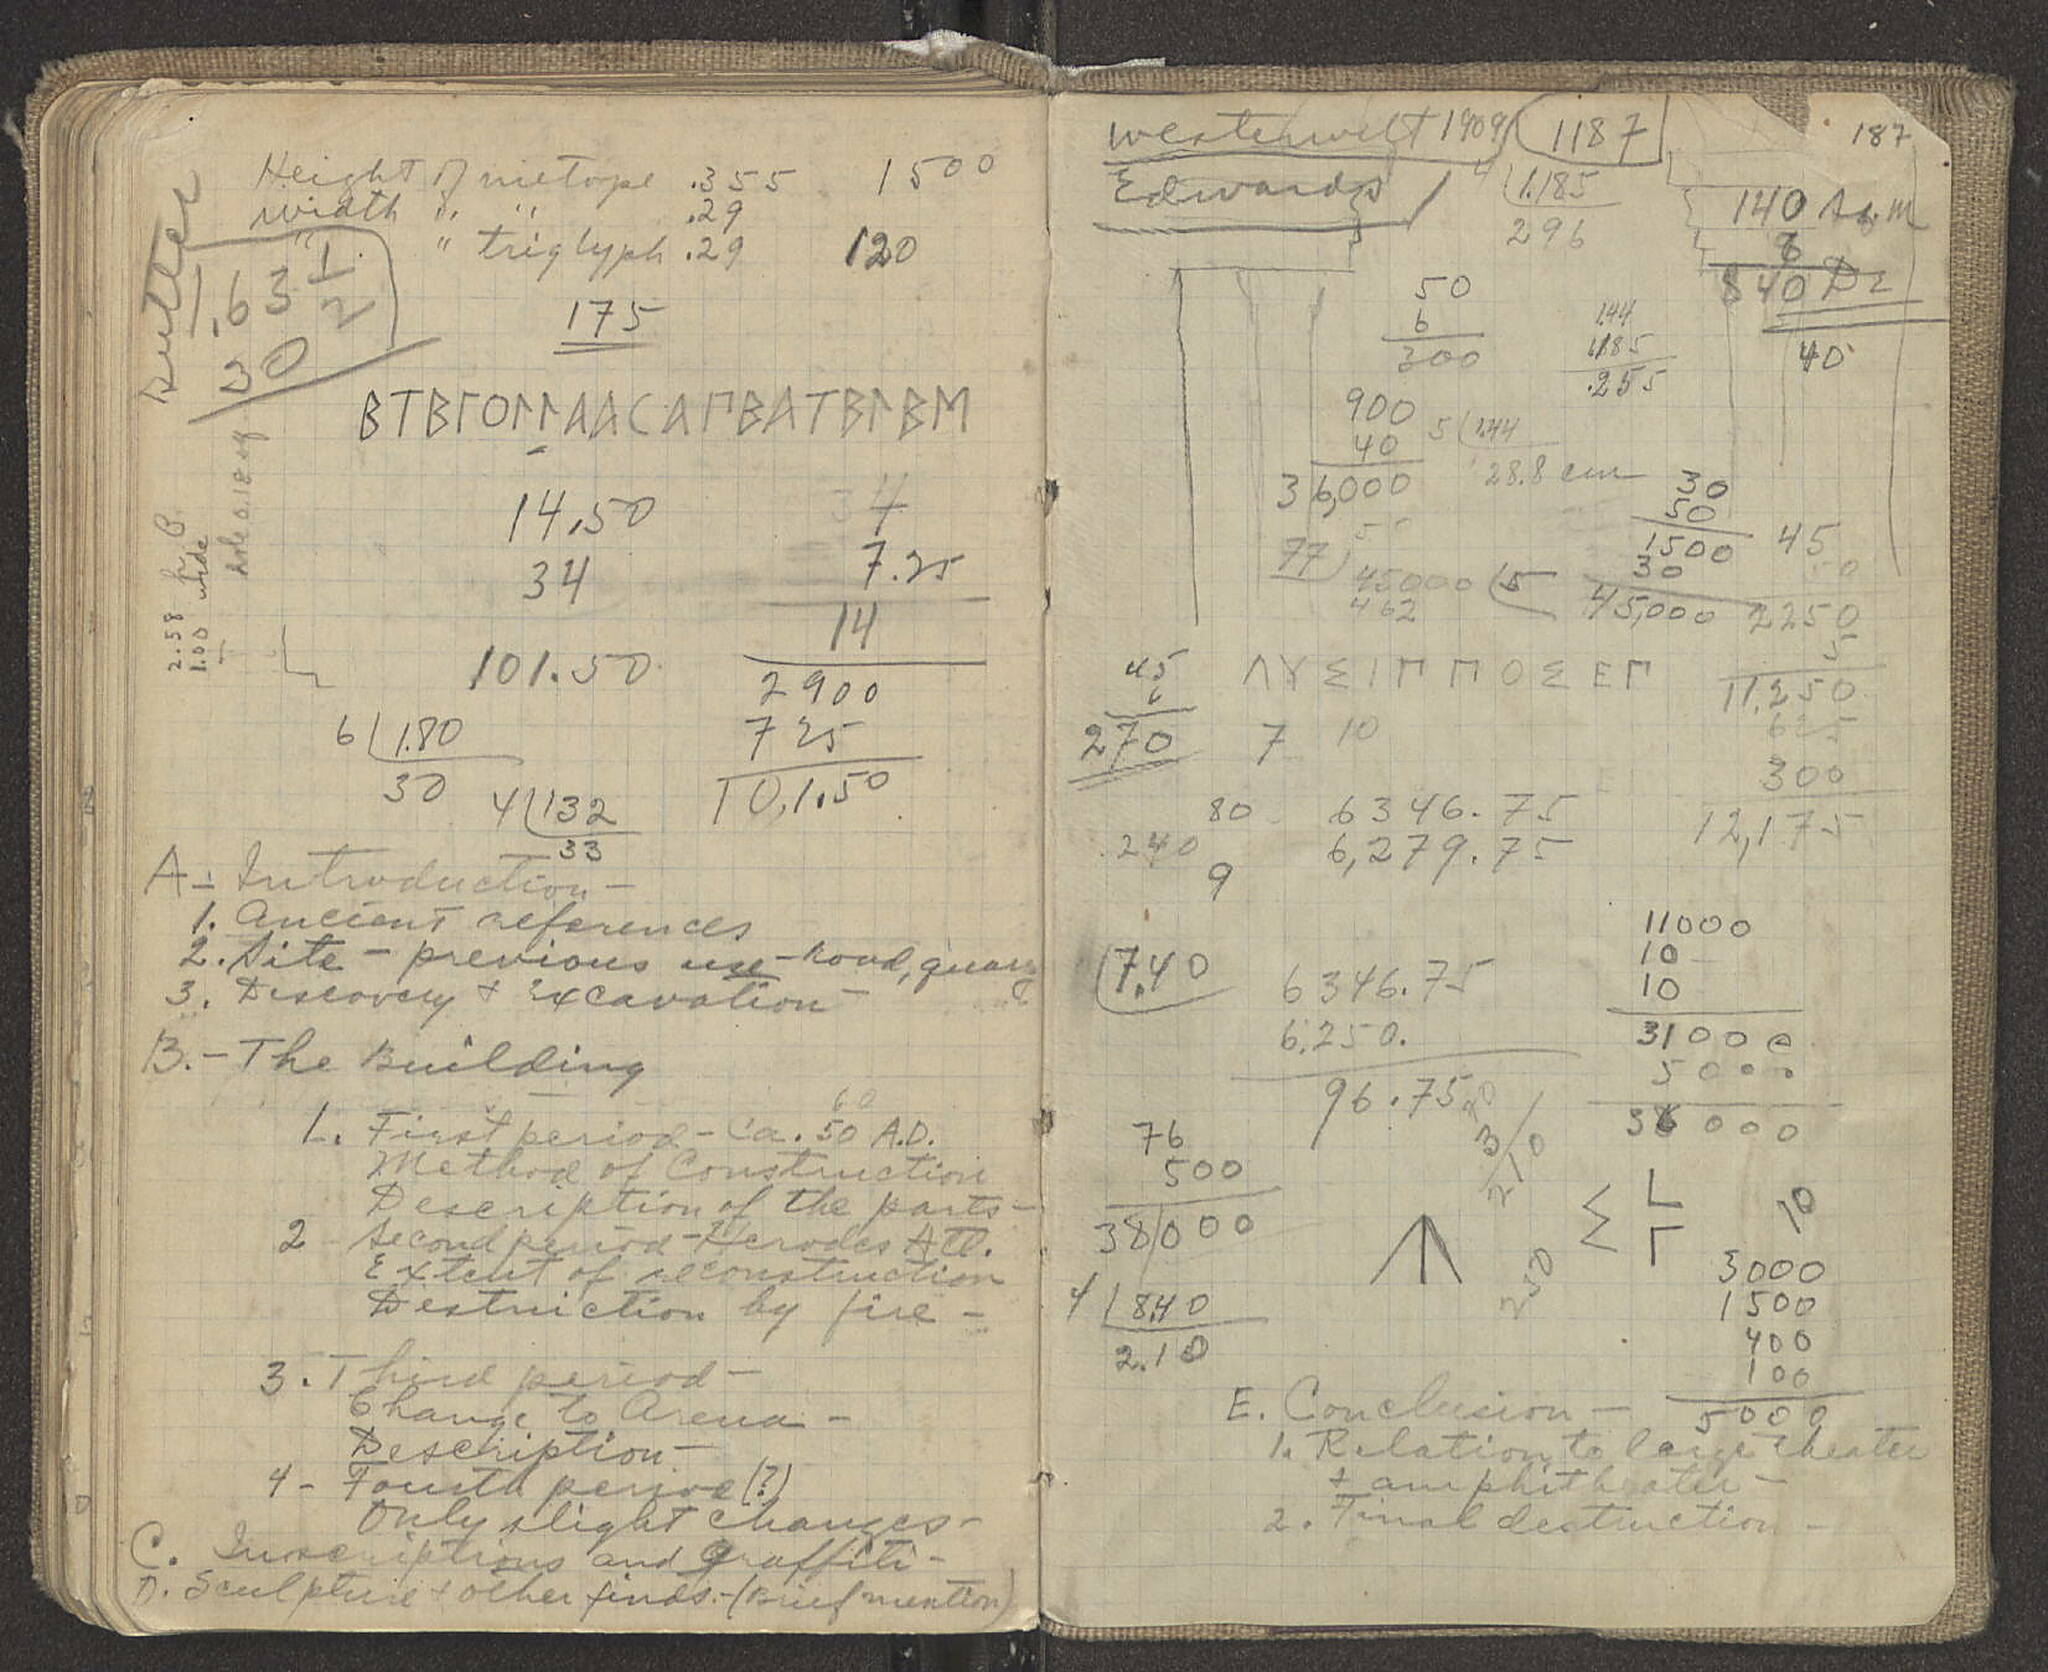 Height of metope .355 1500
width " " .29
" " triglyph .29 120
Butler
.63 1/2
30
175
ΒΤΒΓΟΛΛΑΑCΑΠΒΑΤΒΛΒΜ
hole 0.18
2.58 h
1.00 wide
14.50
34
101.50
34
7.25
14
2900
725
10,1.50
6 1.80
30
4 132
33
A - Introduction -
1. Ancient references
2. Site - previous use - Road, quarry
3. Discovery + Excavation -
B. - The Building
60
1. First period - Ca. 50 A.D.
Method of Construction
Description of the parts -
2 Second period - Herodes Att.
Extent of reconstruction
Destruction by fire -
3. Third period -
Change to Arena -
Description -
4 - Fourth period (?)
Only slight changes -
C. Inscriptions and graffiti -
D. Sculpture + other finds. - (Brief mention)
Westervelt 1909 1187
187
Edwards
4 1.185
296
140 Sq. m
6
840 Dr
40
50
6
300
1.44
1.185
.255
900
40
36,000
5 1.44
28.8 cm
30
50
1500
30
45,000
77 45000 5
462
45
50
2250
5
11,250
625
300
12,175
ΛΥΣΙΠΠΟΣΕΠ
45
6
270
7 10
80 6346.75
240 6,279.75
9
7.40
6346.75
6.250.
96.75
11000
10
10
31000
5000
36000
30
3
210
76
500
38,000
4 8.40
2.10
Σ
10
250
3000
1500
400
100
5000
E. Conclusion -
1. Relation to large theater
+ amphitheater -
2. Final destruction -